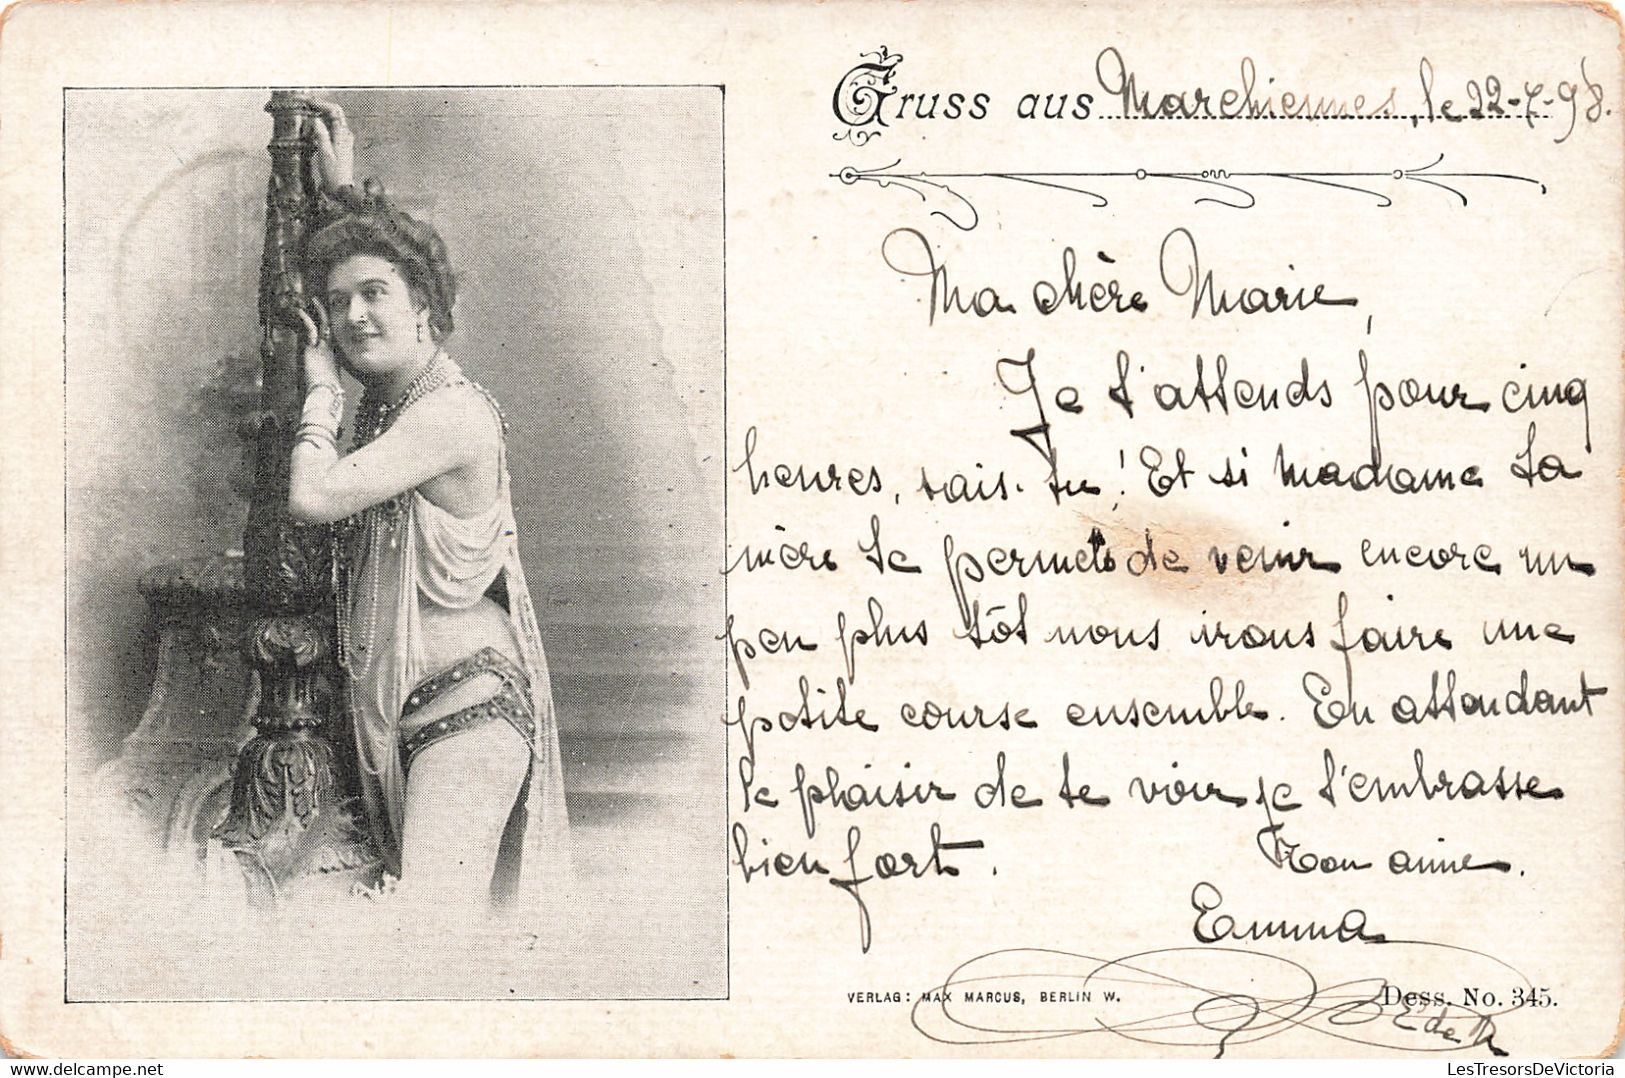 Gruss aus Marchiennes, le 22-7-98.
Ma chère Marie,
Je t'attends pour cinq
heures, sais-tu! Et si madame ta
mère te permets de venir encore un
peu plus tôt nous irons faire une
petite course ensemble. En attendant
le plaisir de te voir je t'embrasse
bien fort. Ton amie.
Emma
VERLAG: MAX MARCUS, BERLIN W. Dess. No. 345.
E de M
LesTresorsDeVictoria